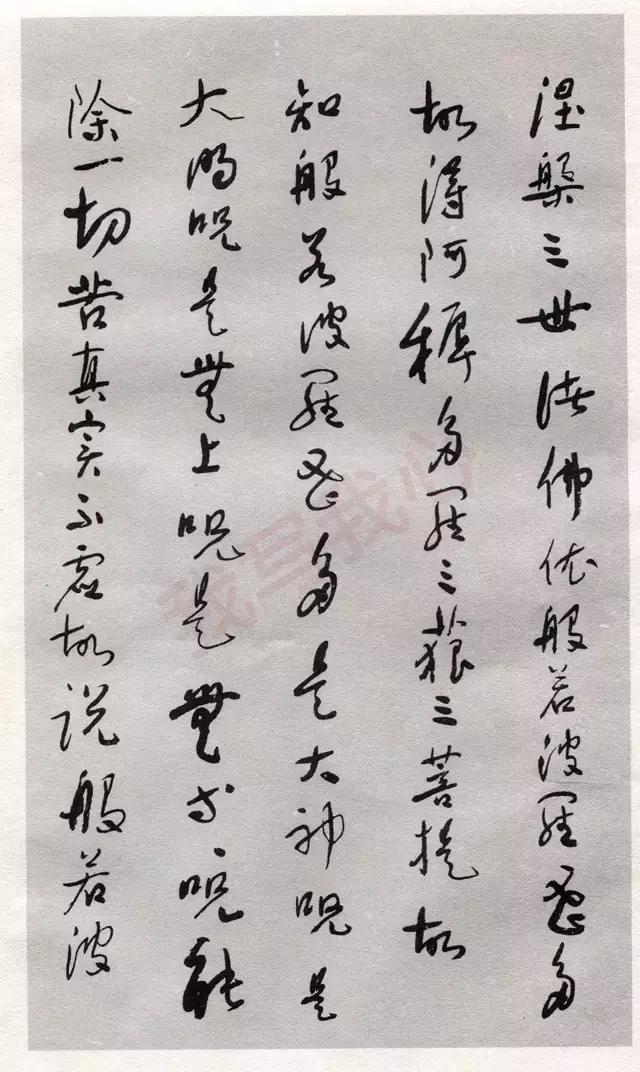 涅槃三世诸佛依般若波罗蜜多
故得阿耨多罗三藐三菩提故
知般若波罗蜜多是大神咒是
大明咒是无上咒是无等咒能
除一切苦真实不虚故说般若波
我写我心